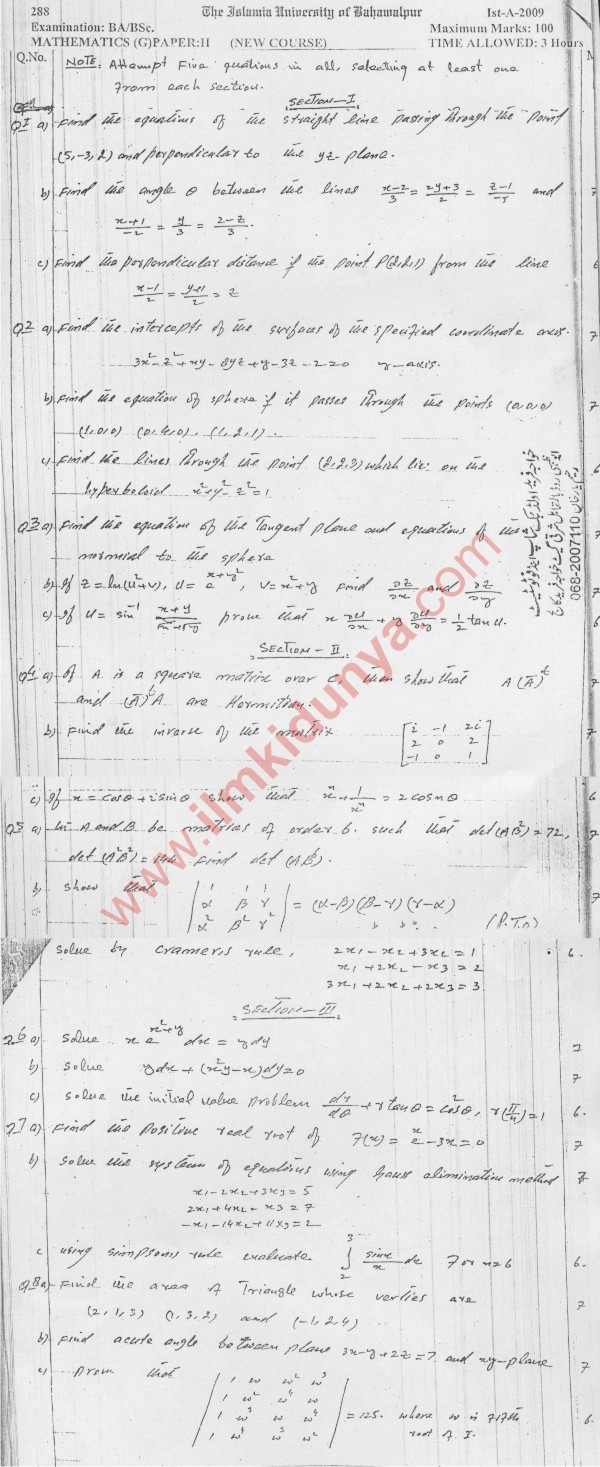 288 The Islamia University of Bahawalpur Ist-A-2009
Examination: BA/BSc. Maximum Marks: 100
MATHEMATICS (G)PAPER:II (NEW COURSE) TIME ALLOWED: 3 Hours
Q.No. NOTE: Attempt Five quations in all, selecting at least one M
from each section.
SECTION-I
Q1 a) Find the equations of the straight line passing through the point
(5,-3,2) and perpendicular to the yz-plane.
b) Find the angle θ between the lines (x-2)/3 = (2y+3)/2 = (z-1)/-5 and 7
(x+1)/-2 = y/3 = (2-z)/3.
c) Find the perpendicular distance if the point P(2,2,1) from the line 6
(x-1)/2 = (y+1)/2 = z
Q2 a) Find the intercepts of the surfaces of the specified coordinate axis. 7
3x²-z²+xy-8yz+y-3z-2=0 y-axis.
b) Find the equation of sphere if it passes through the points (0,0,0) 7
(1,0,0) (0,4,0), (1,2,1).
c) Find the lines through the point (2,2,3) which lie on the 6
hyperboloid x²+y²-z²=1
Q3 a) Find the equation of the Tangent plane and equations of the
normal to the sphere
b) If z=ln(u²+v), u=e^(x+y²), v=x²+y find ∂z/∂x and ∂z/∂y 7
c) If u=sin⁻¹ (x+y)/(√x+√y) prove that x ∂u/∂x + y ∂u/∂y = 1/2 tan u. 6
068-2007110
SECTION-II
Q4 a) If A is a square matrix over C, then show that A(Ā)^t 7
and (Ā)^t A are Hermitian.
b) Find the inverse of the matrix [i -1 2i 7
2 0 2
-1 0 1]
c) If x=cosθ+i sinθ show that xⁿ+1/xⁿ=2cosnθ 6
Q5 a) A and B be matrices of order 6. such that det(AB²)=72, 7
det(A²B²)=144 Find det(AB).
b) Show that |1 1 1 7
α β γ
α² β² γ²| = (α-β)(β-γ)(γ-α)
(P.T.O)
Solve by Cramer's rule, 2x1-x2+3x2=1 6.
x1+2x2-x3=2
3x1+2x2+2x3=3
SECTION-III
Q.6 a) Solve x e^(x²+y) dx = ydy 7
b) Solve ydx+(x²y-x)dy=0 7
c) Solve the initial value problem dr/dθ+r tanθ=cos²θ, r(π/4)=1 6.
Q7 a) Find the positive real root of f(x)=eˣ-3x=0 7
b) Solve the system of equations using Gauss elimination method 7
x1-2x2+3x3=5
2x1+4x2-x3=7
-x1-14x2+11x3=2
c using simpsons rule evaluate ∫₂³ sinx/x dx For n=6 6.
Q8 a) Find the area of Triangle whose verties are 7
(2,1,3) (1,3,2) and (-1,2,4)
b) Find acute angle between plane 3x-y+2z=7 and xy-plane 7
c) Prove that |1 w w² w³
1 w² w⁴ w
1 w³ w w⁴
1 w⁴ w³ w²| =125. where w is 6.
root of I.
www.ilmkidunya.com